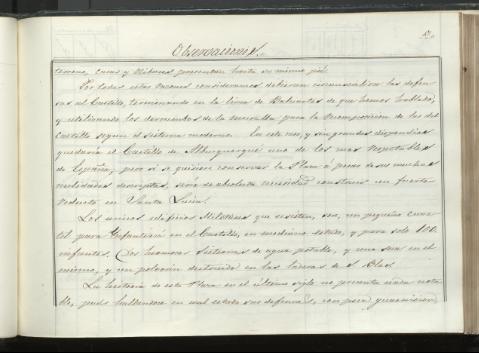 Observaciones.
terreno, cuevas y ribazos presentan hasta su mismo pié.
Por todas estas razones consideramos debieran circunscribirse las defen-
sas al Castillo, terminando en la loma de Baluartes de que hemos hablado,
y utilizando los derrumbos de la muralla para la recomposicion de las del
castillo segun el sistema moderno. En este caso, y sin grandes dispendios
quedaria el Castillo de Alburquerque uno de los mas respetables
de España, pero si se quisiera conservar la Plaza à pesar de sus muchas
nulidades descriptas, seria de absoluta necesidad construir un fuerte
reducto en Santa Lucia.
Los unicos edificios Militares que existen, son, un pequeño cuar-
tel para Infanteria en el Castillo, en mediano estado, y para solo 100
infantes. Dos hermosas Cisternas de agua potable, y una en el
mismo, y un polvorin destruido en las afueras de S. Blas.
La historia de esta Plaza en el último siglo no presenta nada nota-
ble, pues hallandose en mal estado sus defensas, con poca guarnicion,